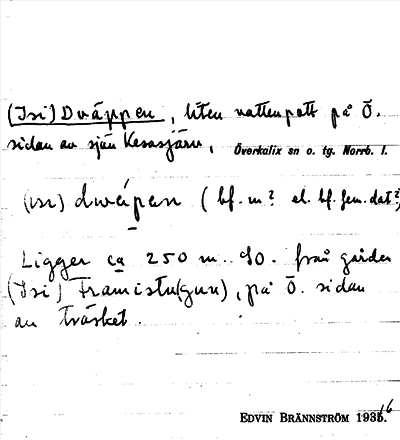 (Isi) Dväppen, liten vattenpott på Ö.
sidan av sjön Kesasjärv,
Överkalix sn o. tg. Norrb. l.
(ısı) dwápen (bf. m? el. bf. fem. dat?)
Ligger ca 250 m. från gården
(Isi) Framistu(gun), på Ö. sidan
av träsket.
EDVIN BRÄNNSTRÖM 1936.